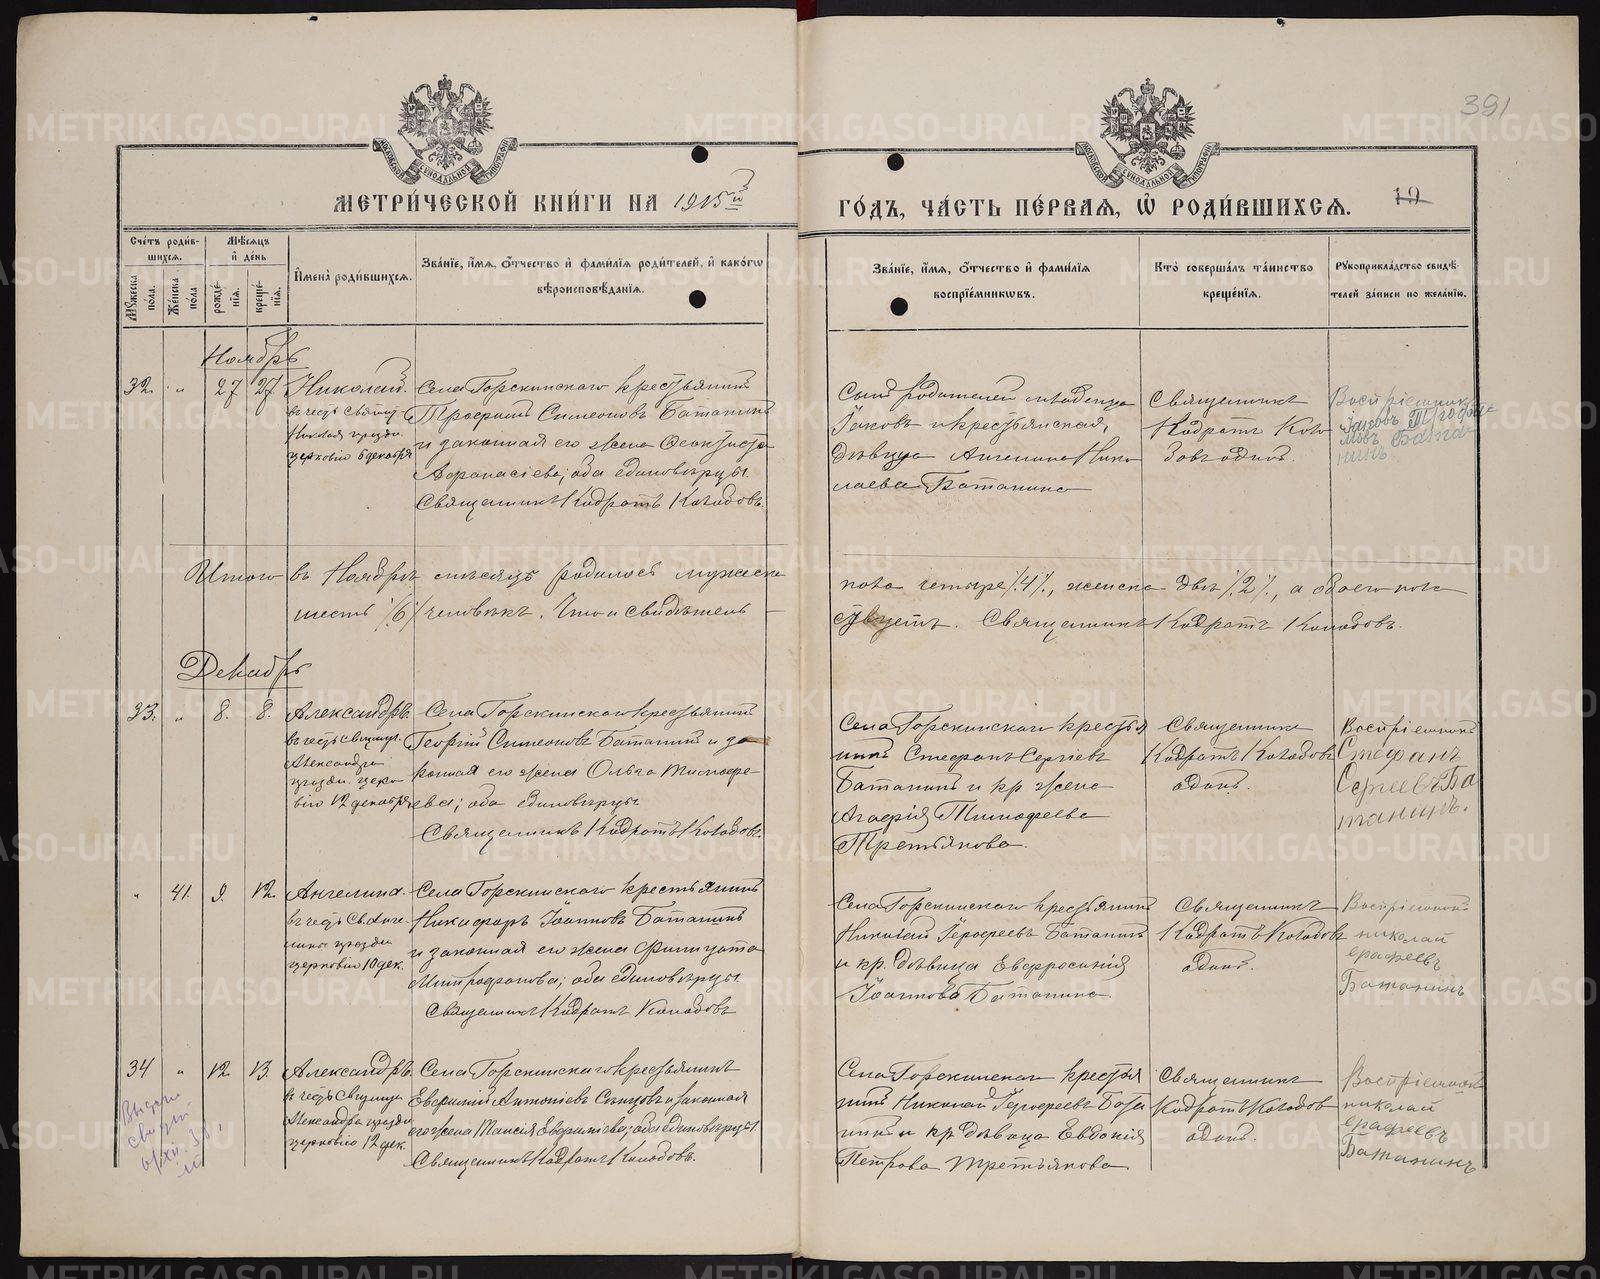 391
МЕТРИ́ЧЕСКОЙ КНИ́ГИ НА 1915й
ГО́ДЪ, ЧА́СТЬ ПЕ́РВАѦ, Ѡ҆ РОДИ́ВШИХСѦ.
19
Сче́тъ роди́в-
шихсѧ.
Мꙋ́жеска по́ла.
Же́нска пола
Мѣ́сѧцъ
и҆ де́нь
рожде́-
нїѧ.
креще́-
нїѧ.
И҆мена̀ роди́вшихсѧ.
Зва́нїе, и҆́мѧ, ѻ҆́тчество и҆ фами́лїѧ роди́телей, и҆ како́гѡ
вѣроисповѣ́данїѧ.
Зва́нїе, и҆́мѧ, ѻ҆́тчество и҆ фами́лїѧ
воспрїе́мникѡвъ.
Кто̀ соверша́лъ та́инство
креще́нїѧ.
Рꙋкоприкла́дство свидѣ́-
телей за́писи по жела́нїю.
Ноябрь
32. " 27 27
Николай.
въ честь Святит.
Николая праздн.
церковію 6 декабря
Села Горскинскаго крестьянинъ
Трофимъ Симеоновъ Батанинъ
и законная его жена Феоктиста
Афанасіева; оба единовѣрцы.
Священникъ Кодратъ Колодовъ.
Сынъ родителей младенца
Іаковъ и крестьянская,
дѣвица Ангелина Нико
лаева Батанина
Священникъ
Кодратъ Коло
довъ один.
Воспріемник
Іаковъ Трофи
мовъ Бата
нинъ
Итого въ Ноябрѣ мѣсяцѣ родилось мужеска
пола четыре /.4/., женска двѣ /.2/., а обоего пола
шесть /.6/ человѣкъ. Что и свидѣтель
ствуетъ. Священникъ Кодратъ Колодовъ.
Декабрь
33. " 8. 8.
Александръ.
въ честь Свщмуч.
Александра
праздн. церко
вію 12 декабря
Села Горскинскаго крестьянинъ
Георгій Симеоновъ Батанинъ и за
конная его жена Ольга Тимофе
ева; оба единовѣрцы
Священникъ Кодратъ Колодовъ.
Села Горскинскаго крестья
нинъ Стефанъ Сергіевъ
Батанинъ и кр жена
Агафія Тимофеева
Третьякова.
Священникъ
Кодратъ Колодовъ
один.
Воспріемникъ
Стефанъ
Сергеевъ Ба
танинъ.
" 41. 9. 12.
Ангелина.
въ честь Св. Анге
лины праздн
церковію 10 дек.
Села Горскинскаго крестьянинъ
Никифоръ Іоанновъ Батанинъ
и законная его жена Филицата
Митрофанова; оба единовѣрцы.
Священникъ Кодратъ Колодовъ
Села Горскинскаго крестьянинъ
Николай Іерофеевъ Батанинъ
и кр. дѣвица Евфросинія
Іоаннова Батанина.
Священникъ
Кодратъ Колодовъ
один.
Воспріемникъ
николай
ерафеевъ
Батанинъ
34 " 12. 13.
Александръ.
въ честь Свщмуч
Александра праздн
церковію 12 дек.
Села Горскинскаго крестьянинъ
Евфимій Антоніевъ и законная
его жена Таисія Евфиміева; оба единовѣрцы
Священникъ Кодратъ Колодовъ.
Села Горскинскаго крестья
нинъ Николай Іерофеевъ Бата
нинъ и кр дѣвица Евдокія
Петрова Третьякова.
Священникъ
Кодратъ Колодовъ
один.
Воспріемникъ
николай
ерафеевъ
Батанинъ
METRIKI.GASO-URAL.RU